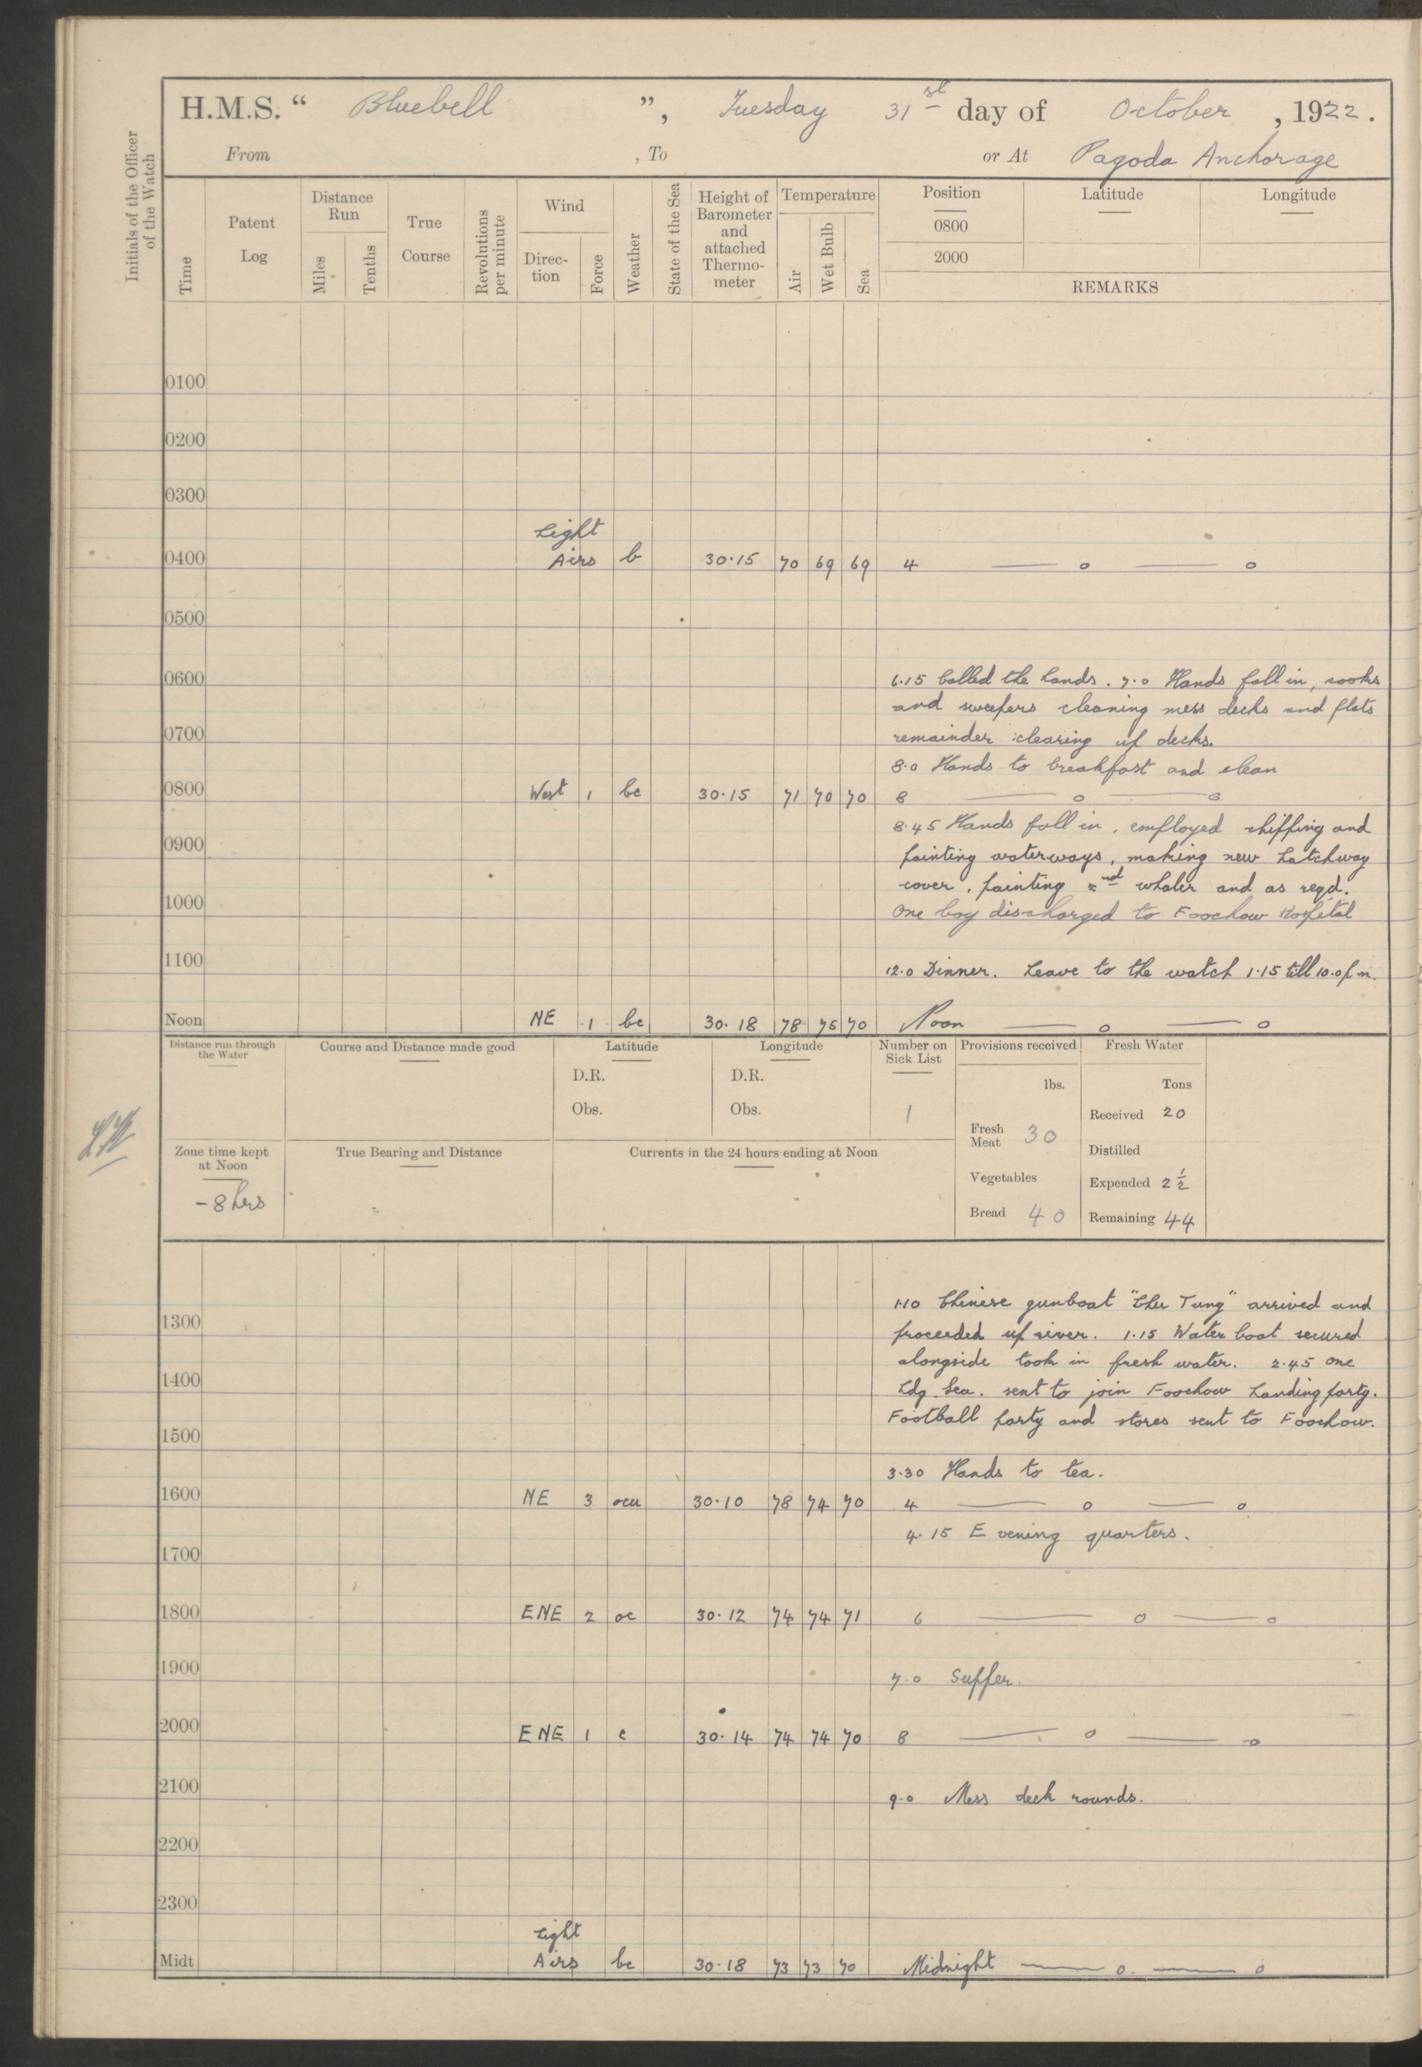 H.M.S. “ Bluebell ”, Tuesday 31st day of October, 1922.
From , To or At Pagoda Anchorage
Initials of the Officer of the Watch
Time
Patent Log
Distance Run
Miles
Tenths
True Course
Revolutions per minute
Wind
Direc-tion
Force
Weather
State of the Sea
Height of Barometer and attached Thermo-meter
Temperature
Air
Wet Bulb
Sea
Position Latitude Longitude
0800
2000
REMARKS
0100
0200
0300
Light
0400 Airs b 30·15 70 69 69 4 — o — o
0500
0600 6.15 Called the hands. 7.0 Hands fall in, cooks
and sweepers cleaning mess decks and flats
0700 remainder clearing up decks.
8.0 Hands to breakfast and clean
0800 West 1 bc 30·15 71 70 70 8 — o — o
8.45 Hands fall in, employed chipping and
0900 painting waterways, making new hatchway
cover, painting 2nd whaler and as reqd.
1000 One boy discharged to Foochow Hospital
1100 12.0 Dinner. Leave to the watch 1.15 till 10.0 p.m.
Noon NE 1 bc 30.18 78 75 70 Noon — o — o
Distance run through the Water
Course and Distance made good
Latitude
D.R.
Obs.
Longitude
D.R.
Obs.
Number on Sick List
1
Provisions received
lbs.
Fresh Meat 30
Vegetables
Bread 40
Fresh Water
Tons
Received 20
Distilled
Expended 2 1/2
Remaining 44
Zone time kept at Noon
-8 hrs
True Bearing and Distance
Currents in the 24 hours ending at Noon
1.10 Chinese gunboat "Chu Tung" arrived and
1300 proceeded up river. 1.15 Water boat secured
alongside took in fresh water. 2.45 one
1400 Ldg. Sea. sent to join Foochow Landing party.
Football party and stores sent to Foochow.
1500
3.30 Hands to tea.
1600 NE 3 ocu 30·10 78 74 70 4 — o — o
4.15 Evening quarters.
1700
1800 ENE 2 oc 30.12 74 74 71 6 — o — o
1900 7.0 Supper
2000 ENE 1 c 30.14 74 74 70 8 — o — o
2100 9.0 Mess deck rounds.
2200
2300
Light
Midt Airs bc 30·18 73 73 70 Midnight — o — o